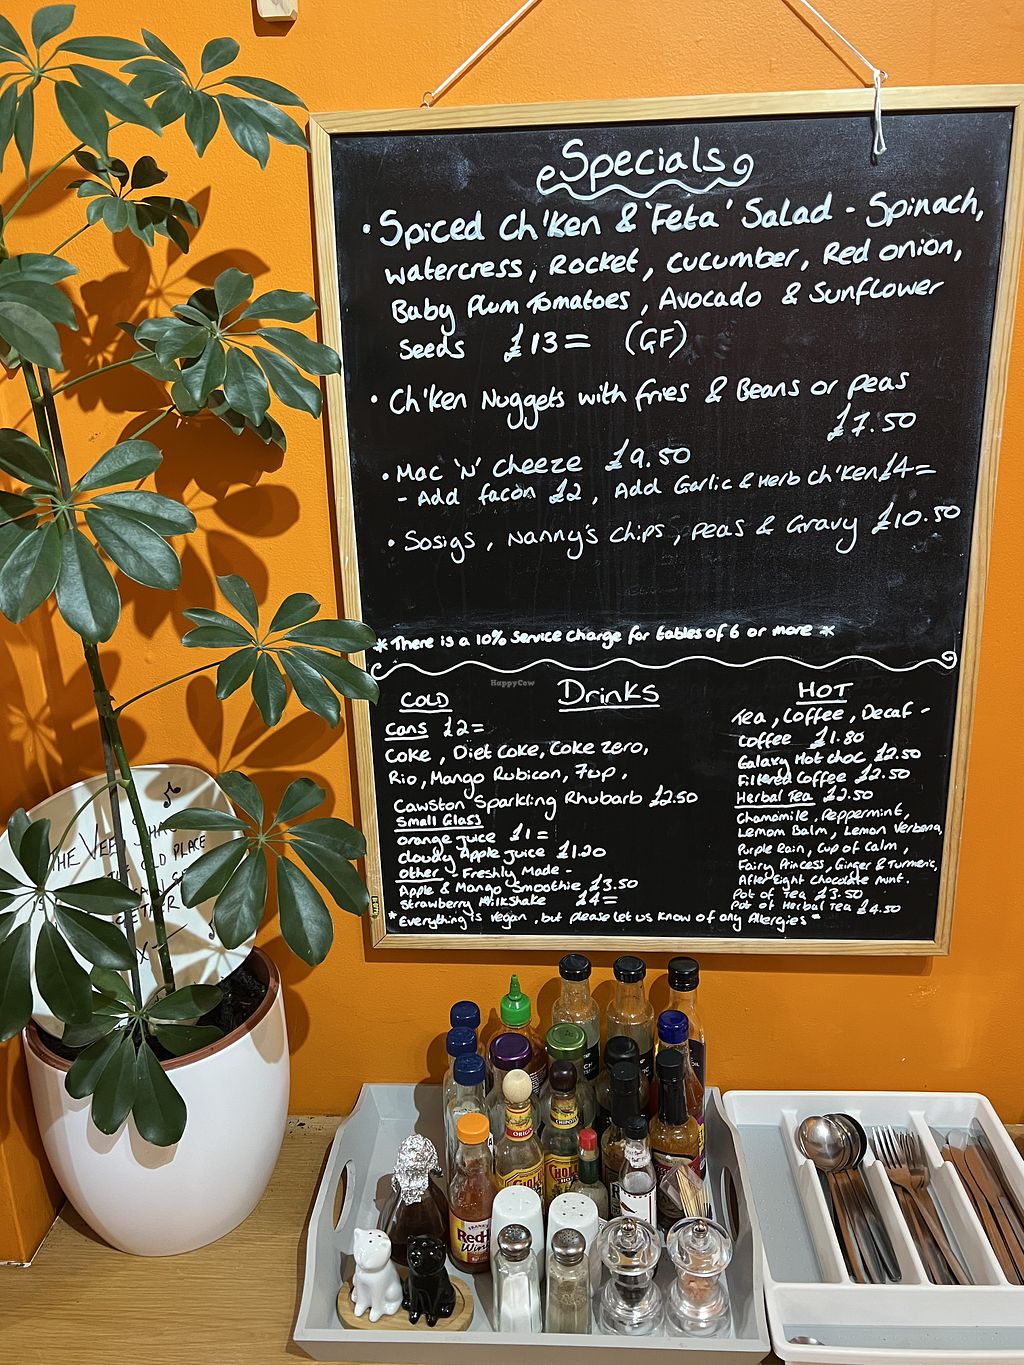 Specials
• Spiced Ch'ken & 'Feta' Salad - Spinach,
watercress, Rocket, cucumber, Red onion,
Baby Plum Tomatoes, Avocado & Sunflower
Seeds £13= (GF)
• Ch'ken Nuggets with fries & Beans or peas
£7.50
• Mac 'N' Cheeze £9.50
- Add facon £2, Add Garlic & Herb Ch'ken £4=
• Sosigs, Nanny's chips, peas & Gravy £10.50
* There is a 10% Service Charge for tables of 6 or more *
HappyCow
Drinks
COLD
Cans £2=
Coke, Diet Coke, Coke zero,
Rio, Mango Rubicon, 7up,
Cawston Sparkling Rhubarb £2.50
Small Glass
orange juice £1=
cloudy Apple juice £1.20
other - Freshly Made -
Apple & Mango Smoothie, £3.50
Strawberry Milkshake £4=
HOT
Tea, Coffee, Decaf -
Coffee £1.80
Galaxy Hot choc £2.50
Filtered Coffee £2.50
Herbal Tea £2.50
Chamomile, Peppermint,
Lemon Balm, Lemon Verbena,
Purple Rain, Cup of Calm,
Fairy Princess, Ginger & Turmeric,
After Eight Chocolate Mint.
Pot of Tea £3.50
Pot of Herbal Tea £4.50
*Everything is vegan, but please let us know of any Allergies*
THE VEE SHA
OLD PLACE
X
RedH
Win
CHOL